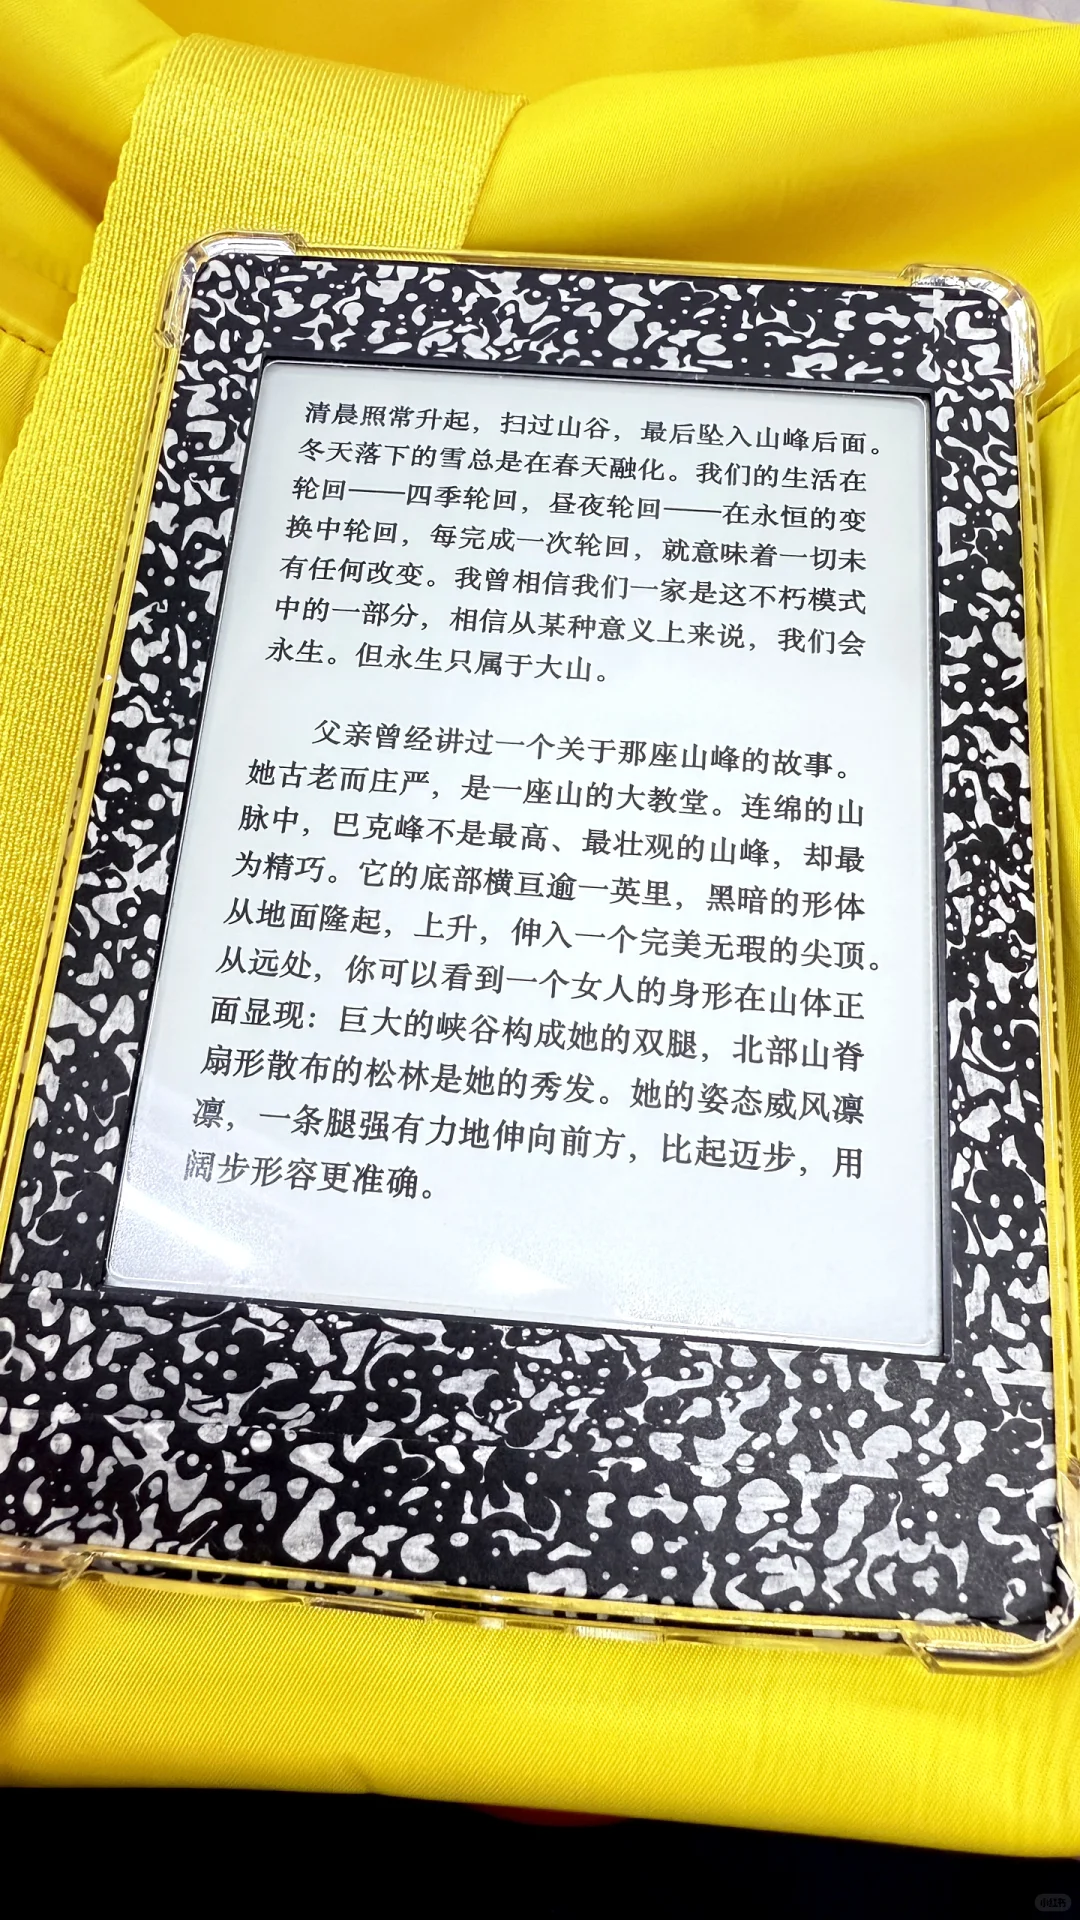 清晨照常升起，扫过山谷，最后坠入山峰后面。
冬天落下的雪总是在春天融化。我们的生活在
轮回——四季轮回，昼夜轮回——在永恒的变
换中轮回，每完成一次轮回，就意味着一切未
有任何改变。我曾相信我们一家是这不朽模式
中的一部分，相信从某种意义上来说，我们会
永生。但永生只属于大山。
父亲曾经讲过一个关于那座山峰的故事。
她古老而庄严，是一座山的大教堂。连绵的山
脉中，巴克峰不是最高、最壮观的山峰，却最
为精巧。它的底部横亘逾一英里，黑暗的形体
从地面隆起，上升，伸入一个完美无瑕的尖顶。
从远处，你可以看到一个女人的身形在山体正
面显现：巨大的峡谷构成她的双腿，北部山脊
扇形散布的松林是她的秀发。她的姿态威风凛
凛，一条腿强有力地伸向前方，比起迈步，用
阔步形容更准确。
小红书